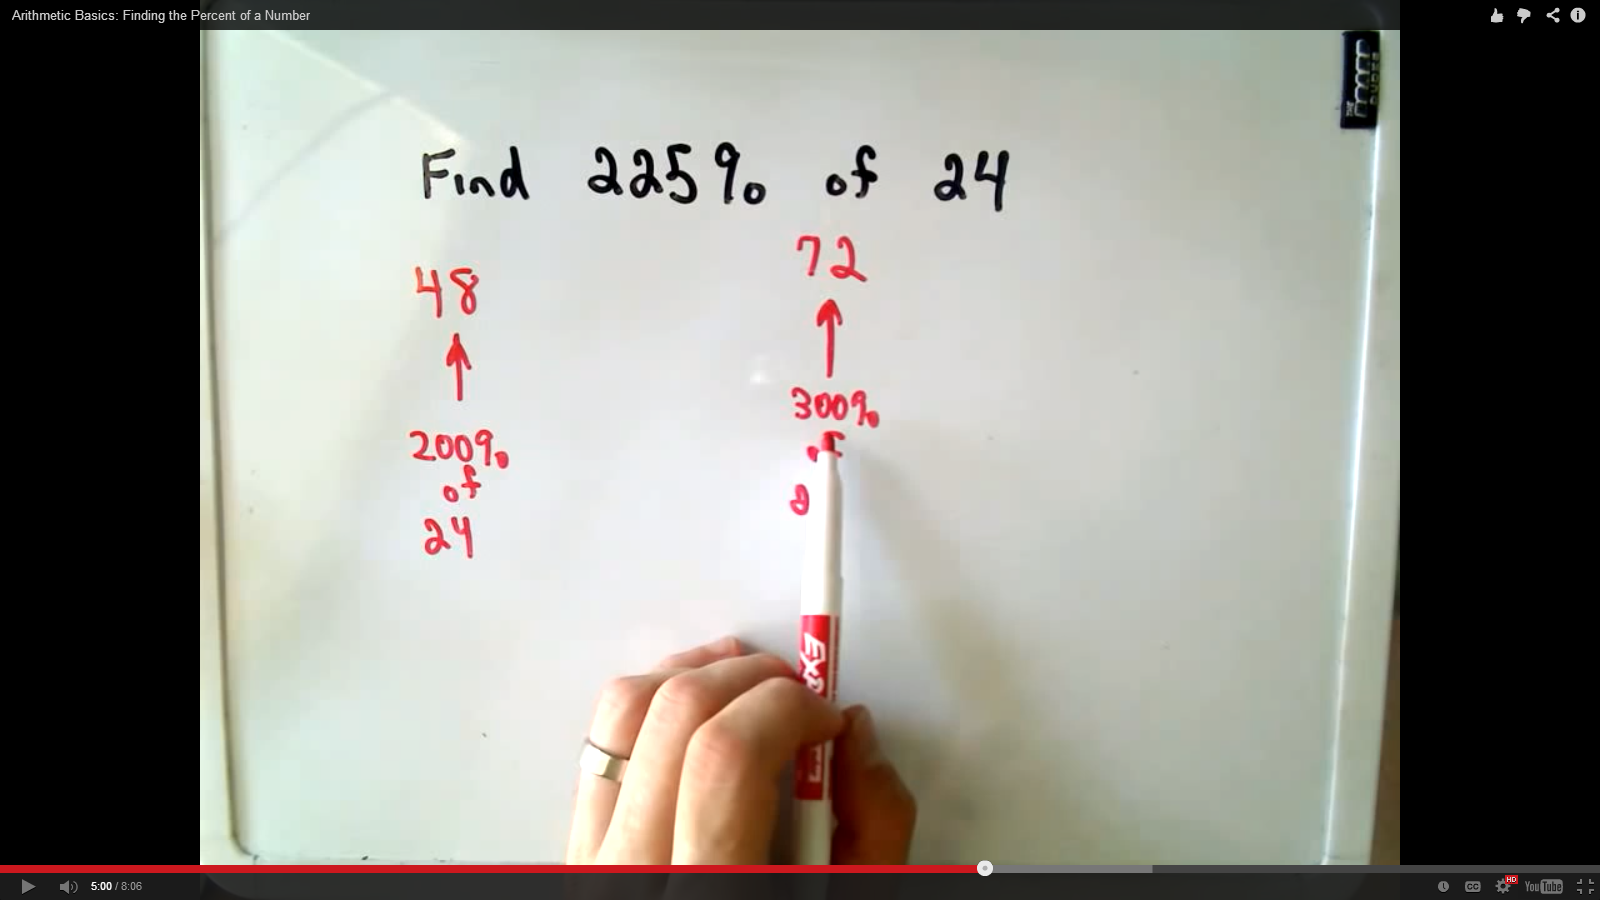 Arithmetic Basics: Finding the Percent of a Number
Find 225% of 24
48
200%
of
24
72
300%
of
2
EXP
5:00 / 8:06
CC
HD
YouTube